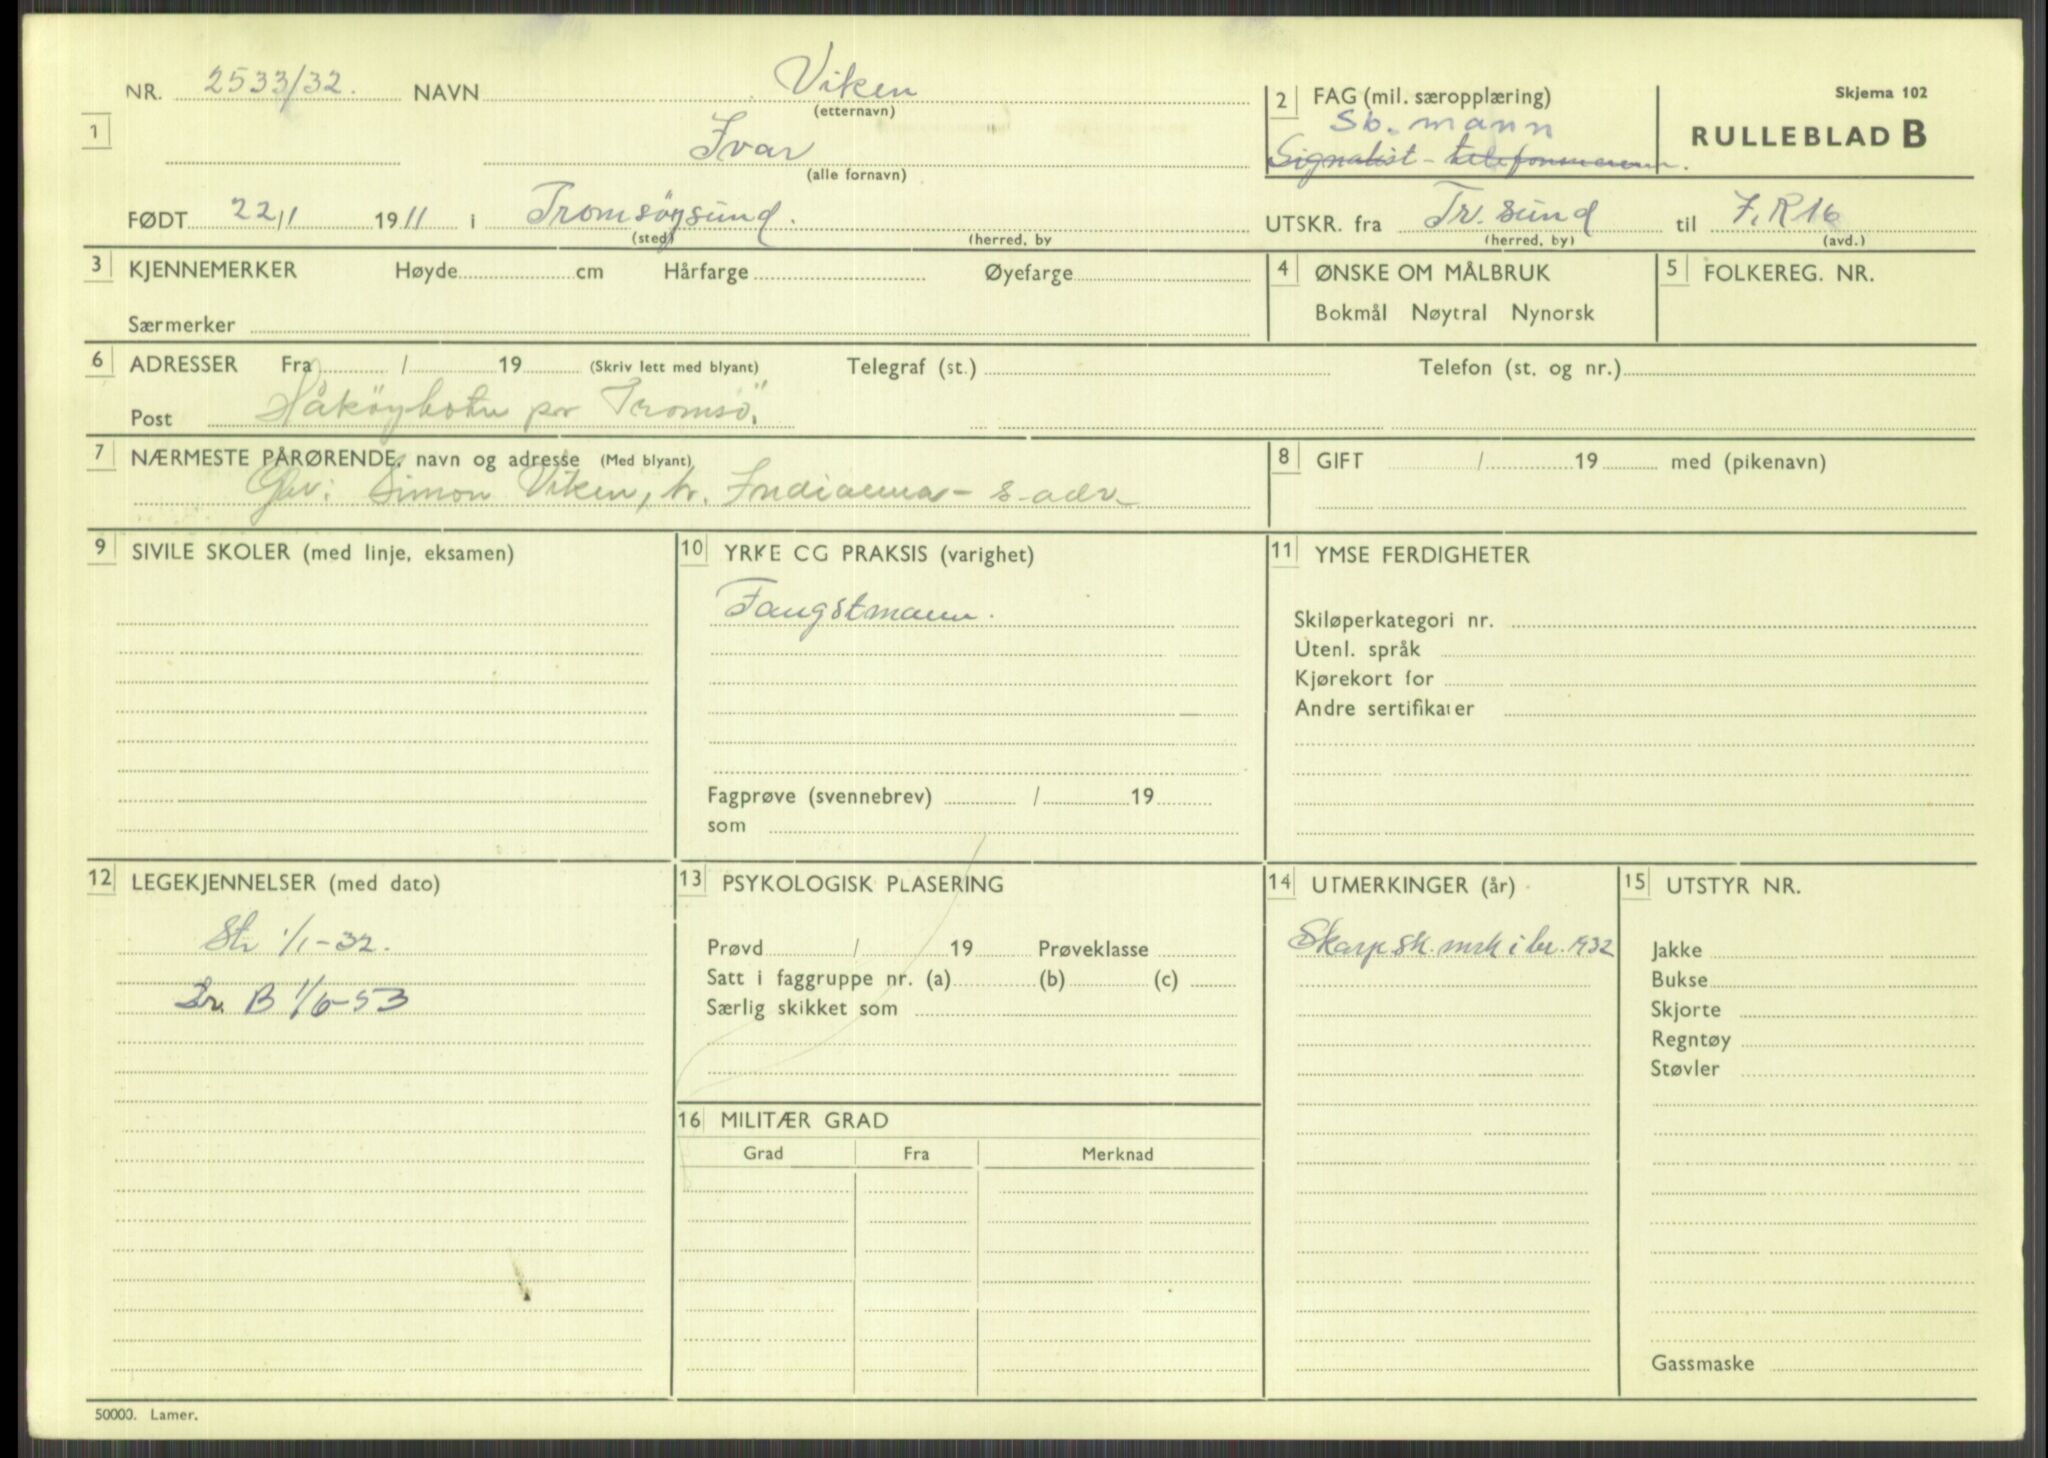 Skjema 102
RULLEBLAD B
1
NR. 2533/32. NAVN Viken
(etternavn)
Ivar
(alle fornavn)
FØDT 22/1 1911 i Tromsöysund.
(sted) (herred, by
2 FAG (mil. særopplæring)
Sb. mann
Signalist - telefonmann.
UTSKR. fra Tr. sund til I.R 16
(herred, by) (avd.)
3 KJENNEMERKER Høyde cm Hårfarge Øyefarge
Særmerker
4 ØNSKE OM MÅLBRUK
Bokmål Nøytral Nynorsk
5 FOLKEREG. NR.
6 ADRESSER Fra / 19 (Skriv lett med blyant) Telegraf (st.) Telefon (st. og nr.)
Post Håköybotn pr Tromsö.
7 NÆRMESTE PÅRØRENDE, navn og adresse (Med blyant)
Simon Viken, - s. adr
8 GIFT / 19 med (pikenavn)
9 SIVILE SKOLER (med linje, eksamen)
10 YRKE CG PRAKSIS (varighet)
Fangstmann.
Fagprøve (svennebrev) / 19
som
11 YMSE FERDIGHETER
Skiløperkategori nr.
Utenl. språk
Kjørekort for
Andre sertifikater
12 LEGEKJENNELSER (med dato)
Str 1/1-32.
B 1/6-53
13 PSYKOLOGISK PLASERING
Prøvd / 19 Prøveklasse
Satt i faggruppe nr. (a) (b) (c)
Særlig skikket som
14 UTMERKINGER (år)
Skarpsk. mrk i br. 1932
15 UTSTYR NR.
Jakke
Bukse
Skjorte
Regntøy
Støvler
Gassmaske
16 MILITÆR GRAD
Grad Fra Merknad
50000. Lamer.